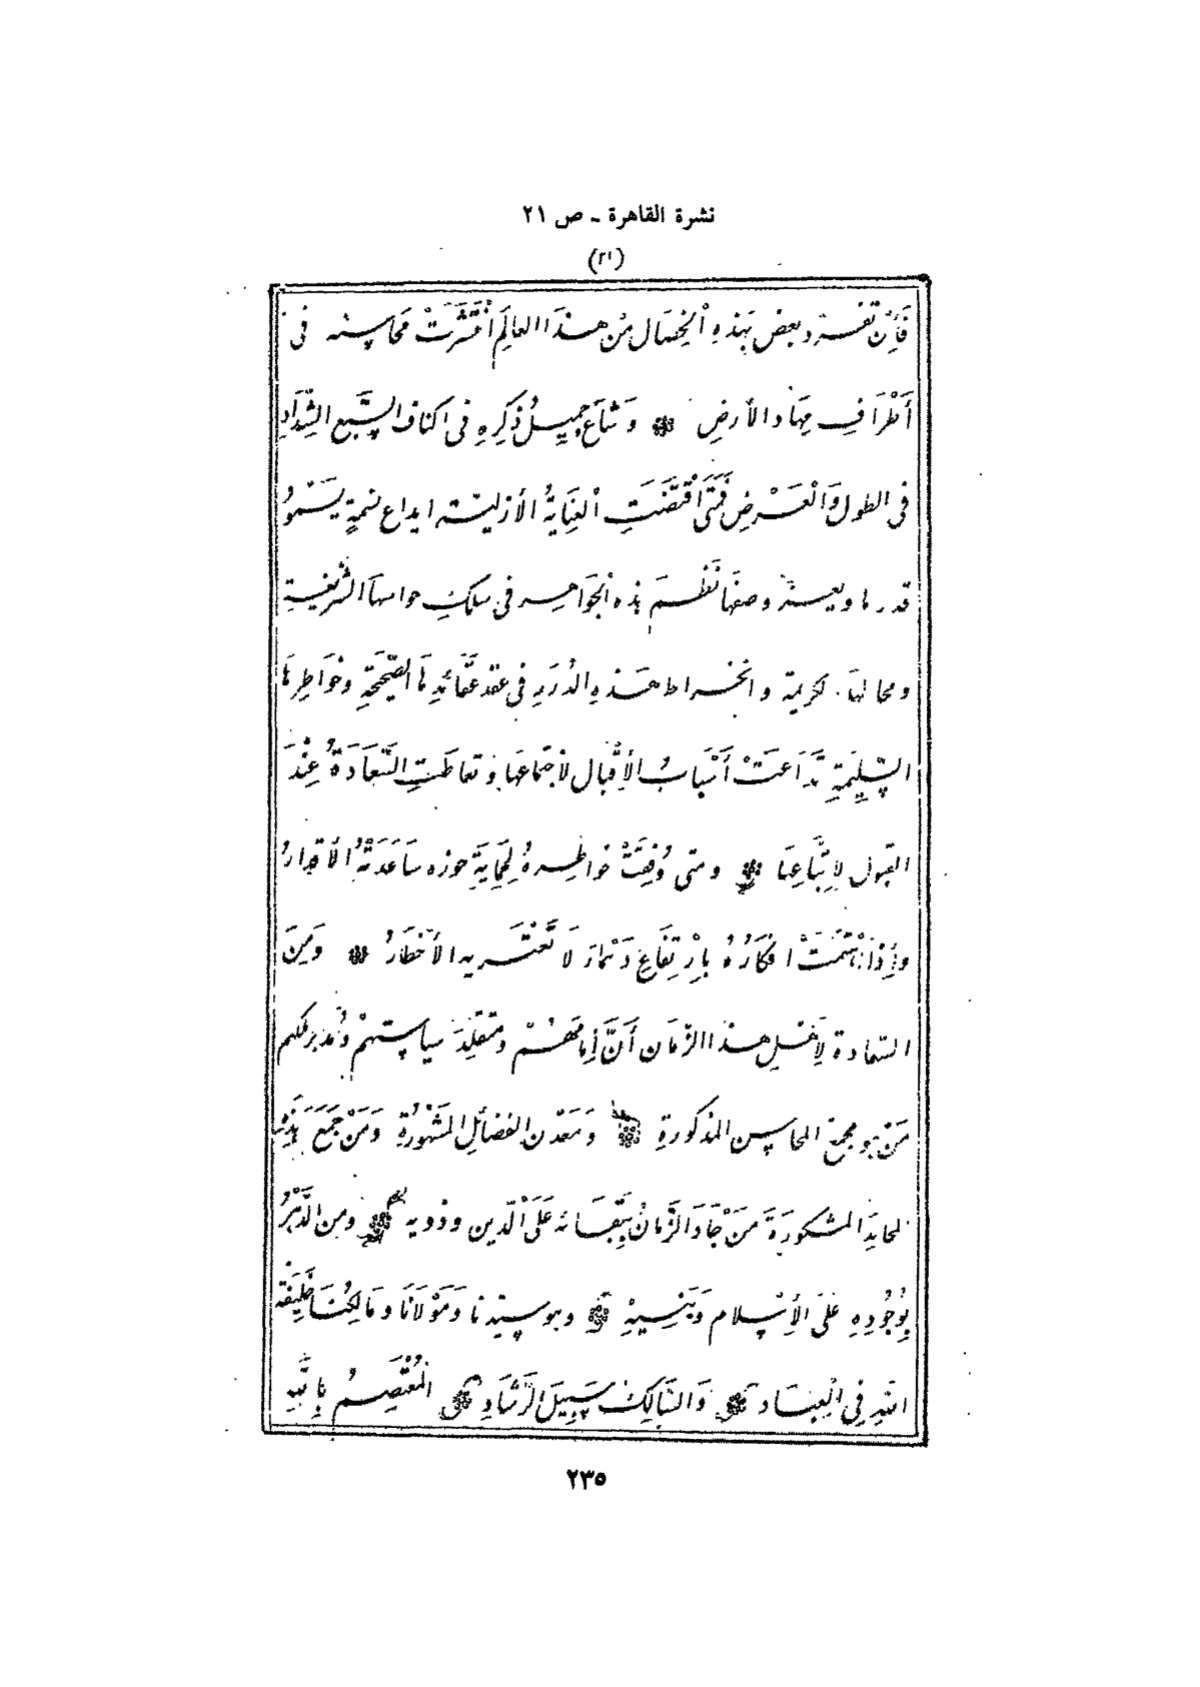 نشرة القاهرة ـ ص ٢١
(٢١)
فَإِن تفرد بعض بهذهِ الْخِصَال مِنْ هذَا العالَمِ أنتَشَرَتْ مَحَاسِنه فى
أَطْرَافِ مِهَاد الأرضِ وَشَاعَ جميلُ ذِكرِهِ فى اكناف السَّبع الشِّدَادِ
فى الطول وَالْعَرْضِ فَمَتَى اقْتَضَتِ الْعِنَايَةُ الأزليَّة ابداع نسمةٍ يَسْمُوُ
قدرها ويعز وصفها نَظَمَ هذه الْجَوَاهر فى سِلكِ حواسها الشَّرِيفةِ
ومحالها الكريمة وانخراط هَذِهِ الدُّرَرِ فى عقد عَقَائدِهَا الصَّحِيحَةِ وخَوَاطِرِهَا
السَّلِيمَةِ تَدَاعَتْ أَسْبَابُ الأِقْبال لاجتماعِهَا وتعاطَتِ السَّعَادَةُ عِنْدَ
القبول لإِتِّبَاعِهَا ومتى وُفِّقَتْ خواطِرهُ لِحِمَايَةِ حوزه سَاعَدَتْهُ الأقدارُ
وإذا اهْتَمَّتْ افكارُهُ بارْتِفَاعِ دَمَار لَا تَعْتَريه الأخطَارُ وَمِنَ
السَّعادة لِأَهلِ هذا الزَّمَان أَنَّ إِمَامَهُمْ ومتقلِّدَ سياستهمْ وَمُدبر ملكهم
مَنْ هو مجمع المحاسن المذكورةِ وَمَعْدن الفضائلِ المَشْهُورَةِ وَمَنْ جَمَعَ هَذِهِ
المحامِدَ المشكورَةَ مَنْ جَادَ الزَّمانُ بِبَقَائهِ عَلَى الْدّين وذويه ومن الدَّهْرُ
بِوُجُودِهِ عَلَى الأِسْلام وَبَنِيهِ وهو سيّدنا وَمَوْلَانَا ومَالِكُنَا خَلِيفَة
اللهِ فِي الْعِبَاد وَالسَّالِكُ سَبِيلَ الرَّشَادِ الْمُعْتَصِمُ بِاللَّهِ
٢٣٥